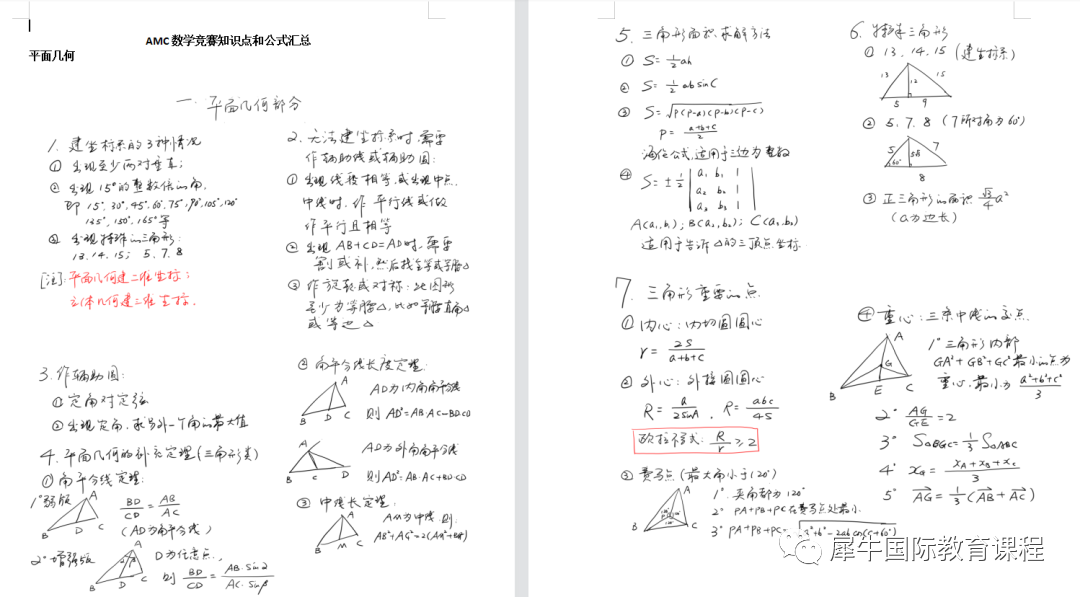 AMC 数学竞赛知识点和公式汇总
平面几何
一 平面几何部分
1. 建坐标系的3种情况
① 出现至少两对垂直;
② 出现15°的整数倍的角,
即 15°, 30°, 45°, 60°, 75°, 90°, 105°, 120°
135°, 150°, 165° 等
③ 出现特殊的三角形:
13. 14. 15; 5. 7. 8
[注]: 平面几何建二维坐标;
立体几何建三维坐标.
2. 无法建坐标系时,需要
作辅助线或辅助圆:
① 出现线段相等,或出现中点,
中线时,作平行线或做
作平行且相等
② 出现 AB+CD=AD时,需要
割或补,然后找全等或等腰△
③ 作旋转或对称: 此图形
至少为等腰△, 比如等腰直角△
或等边△
3. 作辅助圆:
① 定角对定弦
② 出现定角,求另外一个角的最大值
4. 平面几何的补充定理(三角形类)
① 角平分线定理:
1° 弱版
A
B D C
BD/CD = AB/AC
(AD为角平分线)
2° 增强版
A
α β
B D C
D为任意点,
则 BD/CD = AB·sinα/AC·sinβ
② 角平分线长度定理:
A
B D C
AD为内角角平分线
则 AD²=AB·AC-BD·CD
A
B C D
AD为外角角平分线
则AD²=AB·AC+BD·CD
③ 中线长定理:
A
B M C
AM为中线,则:
AB²+AC²=2(AM²+BM²)
5. 三角形面积求解方法
① S=½ah
② S=½absinC
③ S=√P(P-a)(P-b)(P-c)
P=(a+b+c)/2
海伦公式,适用于三边为整数
④ S=±½ | a₁ b₁ 1 |
| a₂ b₂ 1 |
| a₃ b₃ 1 |
A(a₁,b₁); B(a₂,b₂); C(a₃,b₃)
适用于告诉△的三顶点坐标.
6. 特殊三角形
① 13. 14. 15 (建坐标系)
13 12 15
5 9
② 5. 7. 8 (7所对角为60°)
5 7
60°
8
③ 正三角形的面积 √3/4 a²
(a为边长)
7. 三角形重要的点
① 内心: 内切圆圆心
r = 2S/(a+b+c)
② 外心: 外接圆圆心
R = a/2sinA , R = abc/4S
欧拉不等式: R/r ≥ 2
③ 费马点 (最大角小于120°)
A
B C
1° 夹角都为120°
2° PA+PB+PC在费马点处最小.
3° PA+PB+PC=√a²+b²-2abcos(C+60°)
④ 重心: 三条中线的交点.
A
G
B E C
1° 三角形内部
GA²+GB²+GC²最小的点为
重心,最小为 (a²+b²+c²)/3
2° AG/GE=2
3° S△BGC=⅓S△ABC
4° x_G = (x_A+x_B+x_C)/3
5° AG=⅓(AB+AC)
犀牛国际教育课程